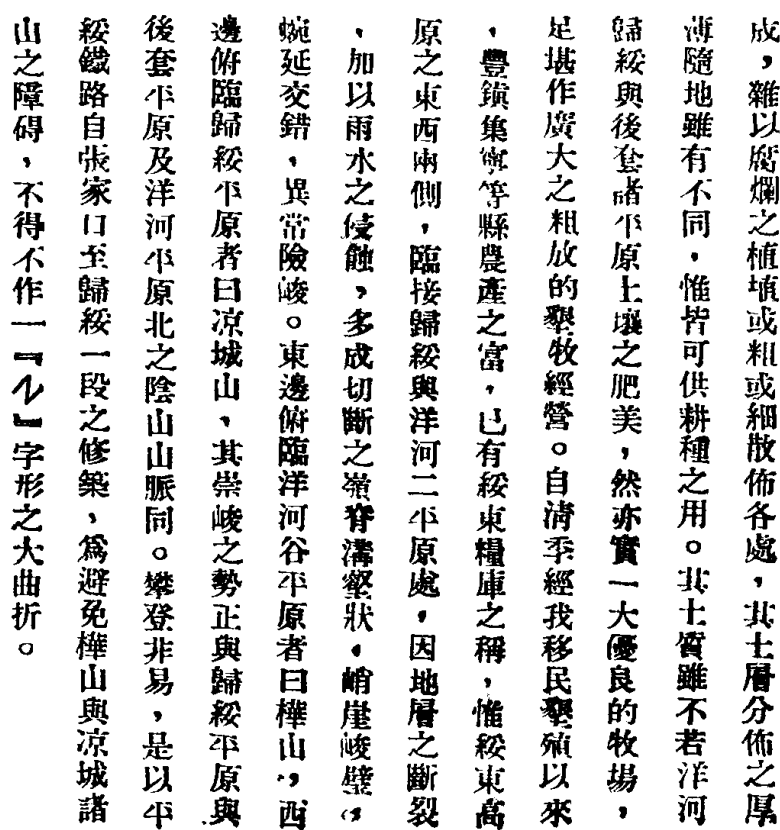 成，雜以腐爛之植墳或粗或細散佈各處，其土層分佈之厚
薄隨地雖有不同，惟皆可供耕種之用。其土質雖不若洋河
歸綏與後套諸平原土壤之肥美，然亦實一大優良的牧場，
足堪作廣大之粗放的墾牧經營。自清季經我移民墾殖以來
，豐鎮集寧等縣農產之富，已有綏東糧庫之稱，惟綏東高
原之東西兩側，臨接歸綏與洋河二平原處，因地層之斷裂
，加以雨水之侵蝕，多成切斷之嶺脊溝壑狀，峭崖峻壁，
蜿延交錯，異常險峻。東邊俯臨洋河谷平原者曰樺山，西
邊俯臨歸綏平原者曰凉城山、其崇峻之勢正與歸綏平原與
後套平原及洋河平原北之陰山山脈同。攀登非易，是以平
綏鐵路自張家口至歸綏一段之修築、爲避免樺山與凉城諸
山之障碍，不得不作一『ㄣ』字形之大曲折。